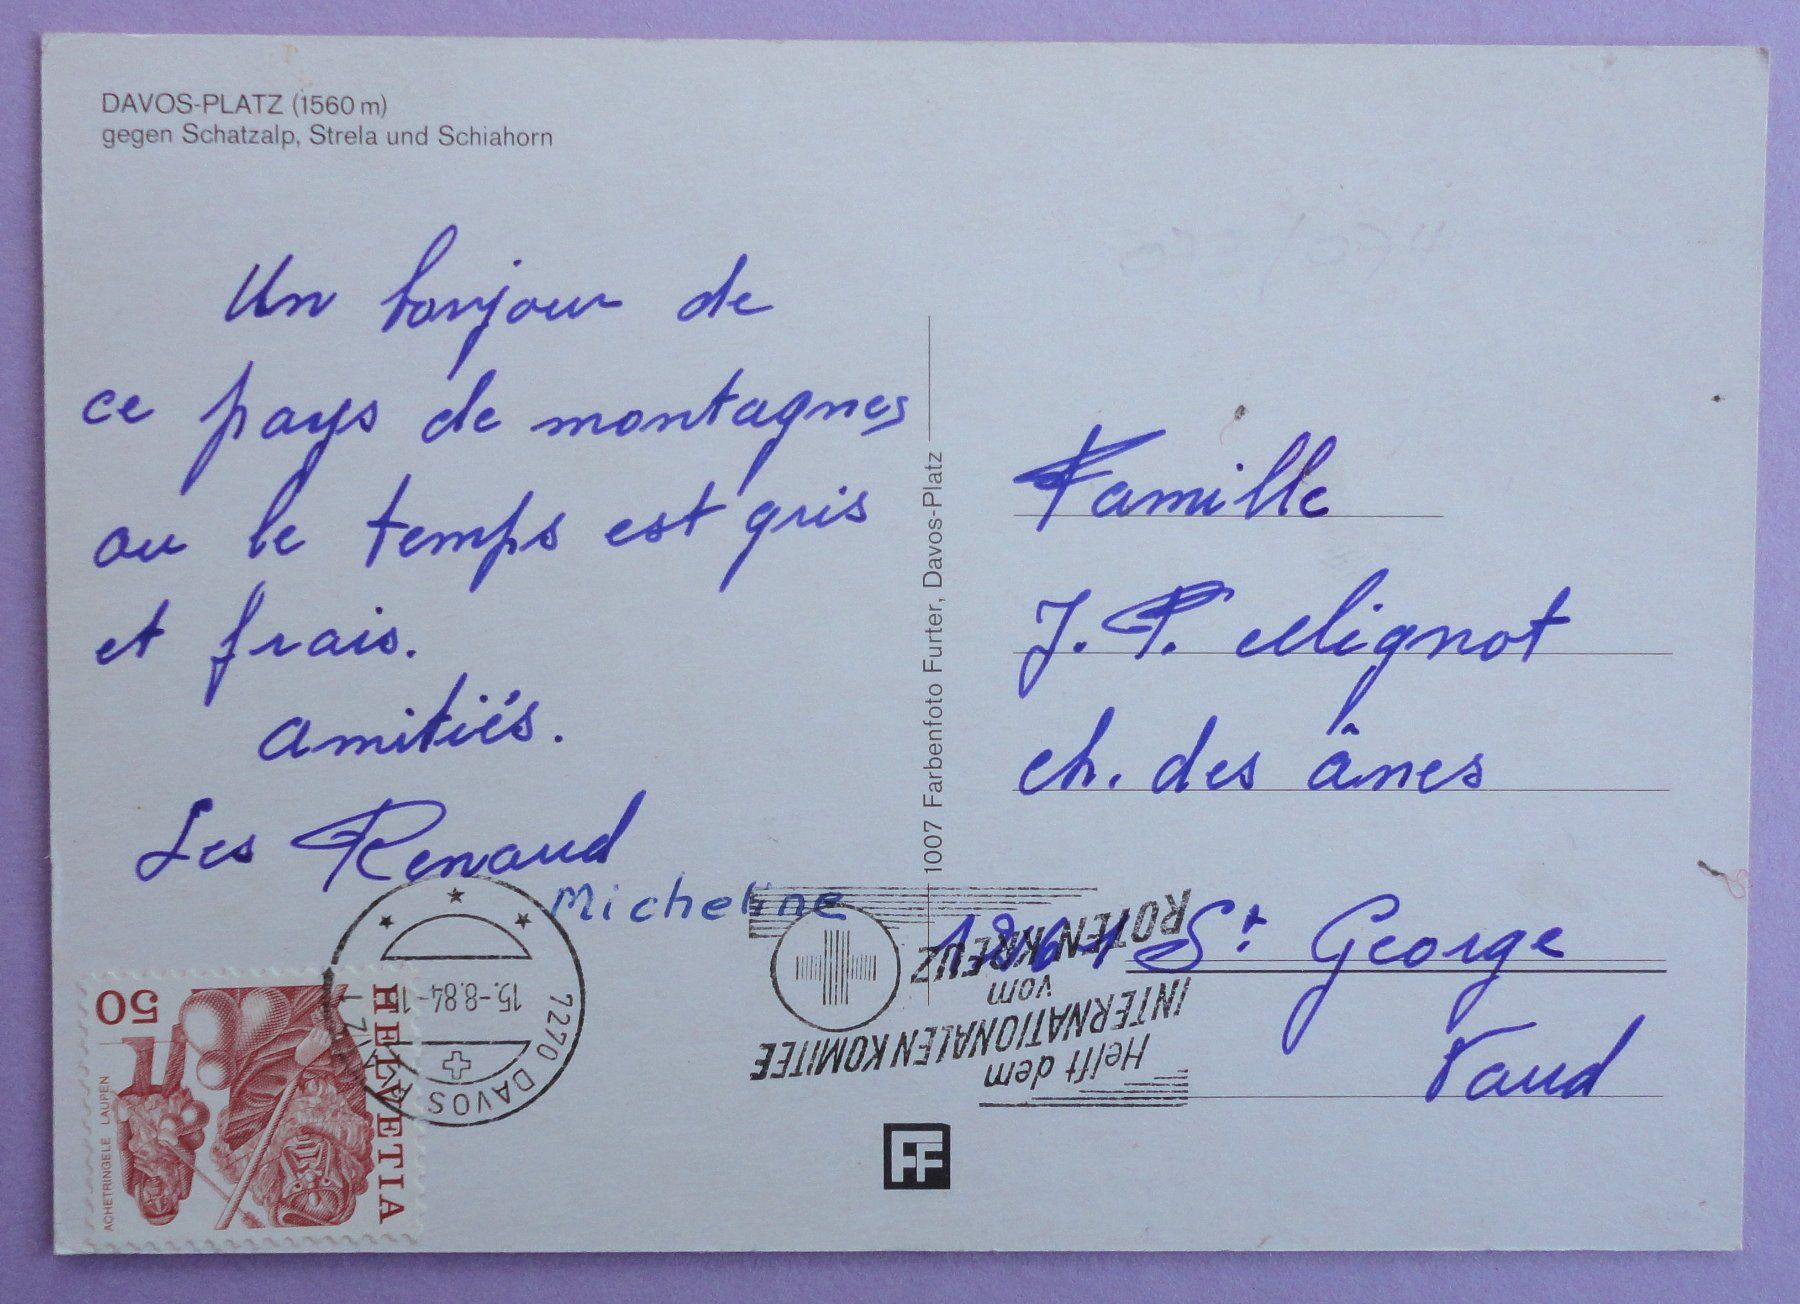 DAVOS-PLATZ (1560 m)
gegen Schatzalp, Strela und Schiahorn
Un bonjour de
ce pays de montagnes
ou le temps est gris
et frais.
amitiés.
Les Renaud
Micheline
1007 Farbenfoto Furter, Davos-Platz
Famille
J. P. Mignot
ch. des ânes
St George
Vaud
Helft dem
INTERNATIONALEN KOMITEE
vom
ROTEN KREUZ
7270 DAVOS
15.-8.84-1
HELVETIA
50
ACHETRINGELE LAUPEN
FF